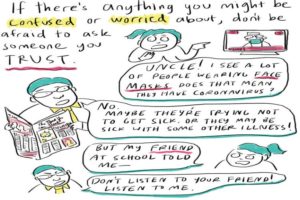 If there's anything you might be
confused or worried about, don't be
afraid to ask
someone you
TRUST.
UNCLE! I SEE A LOT
OF PEOPLE WEARING FACE
MASKS DOES THAT MEAN
THEY HAVE CORONAVIRUS?
NO.
MAYBE THEY'RE TRYING NOT
TO GET SICK. OR THEY MAY BE
SICK WITH SOME OTHER ILLNESS!
BUT MY FRIEND
AT SCHOOL TOLD
ME—
DON'T LISTEN TO YOUR FRIEND!
LISTEN TO ME.